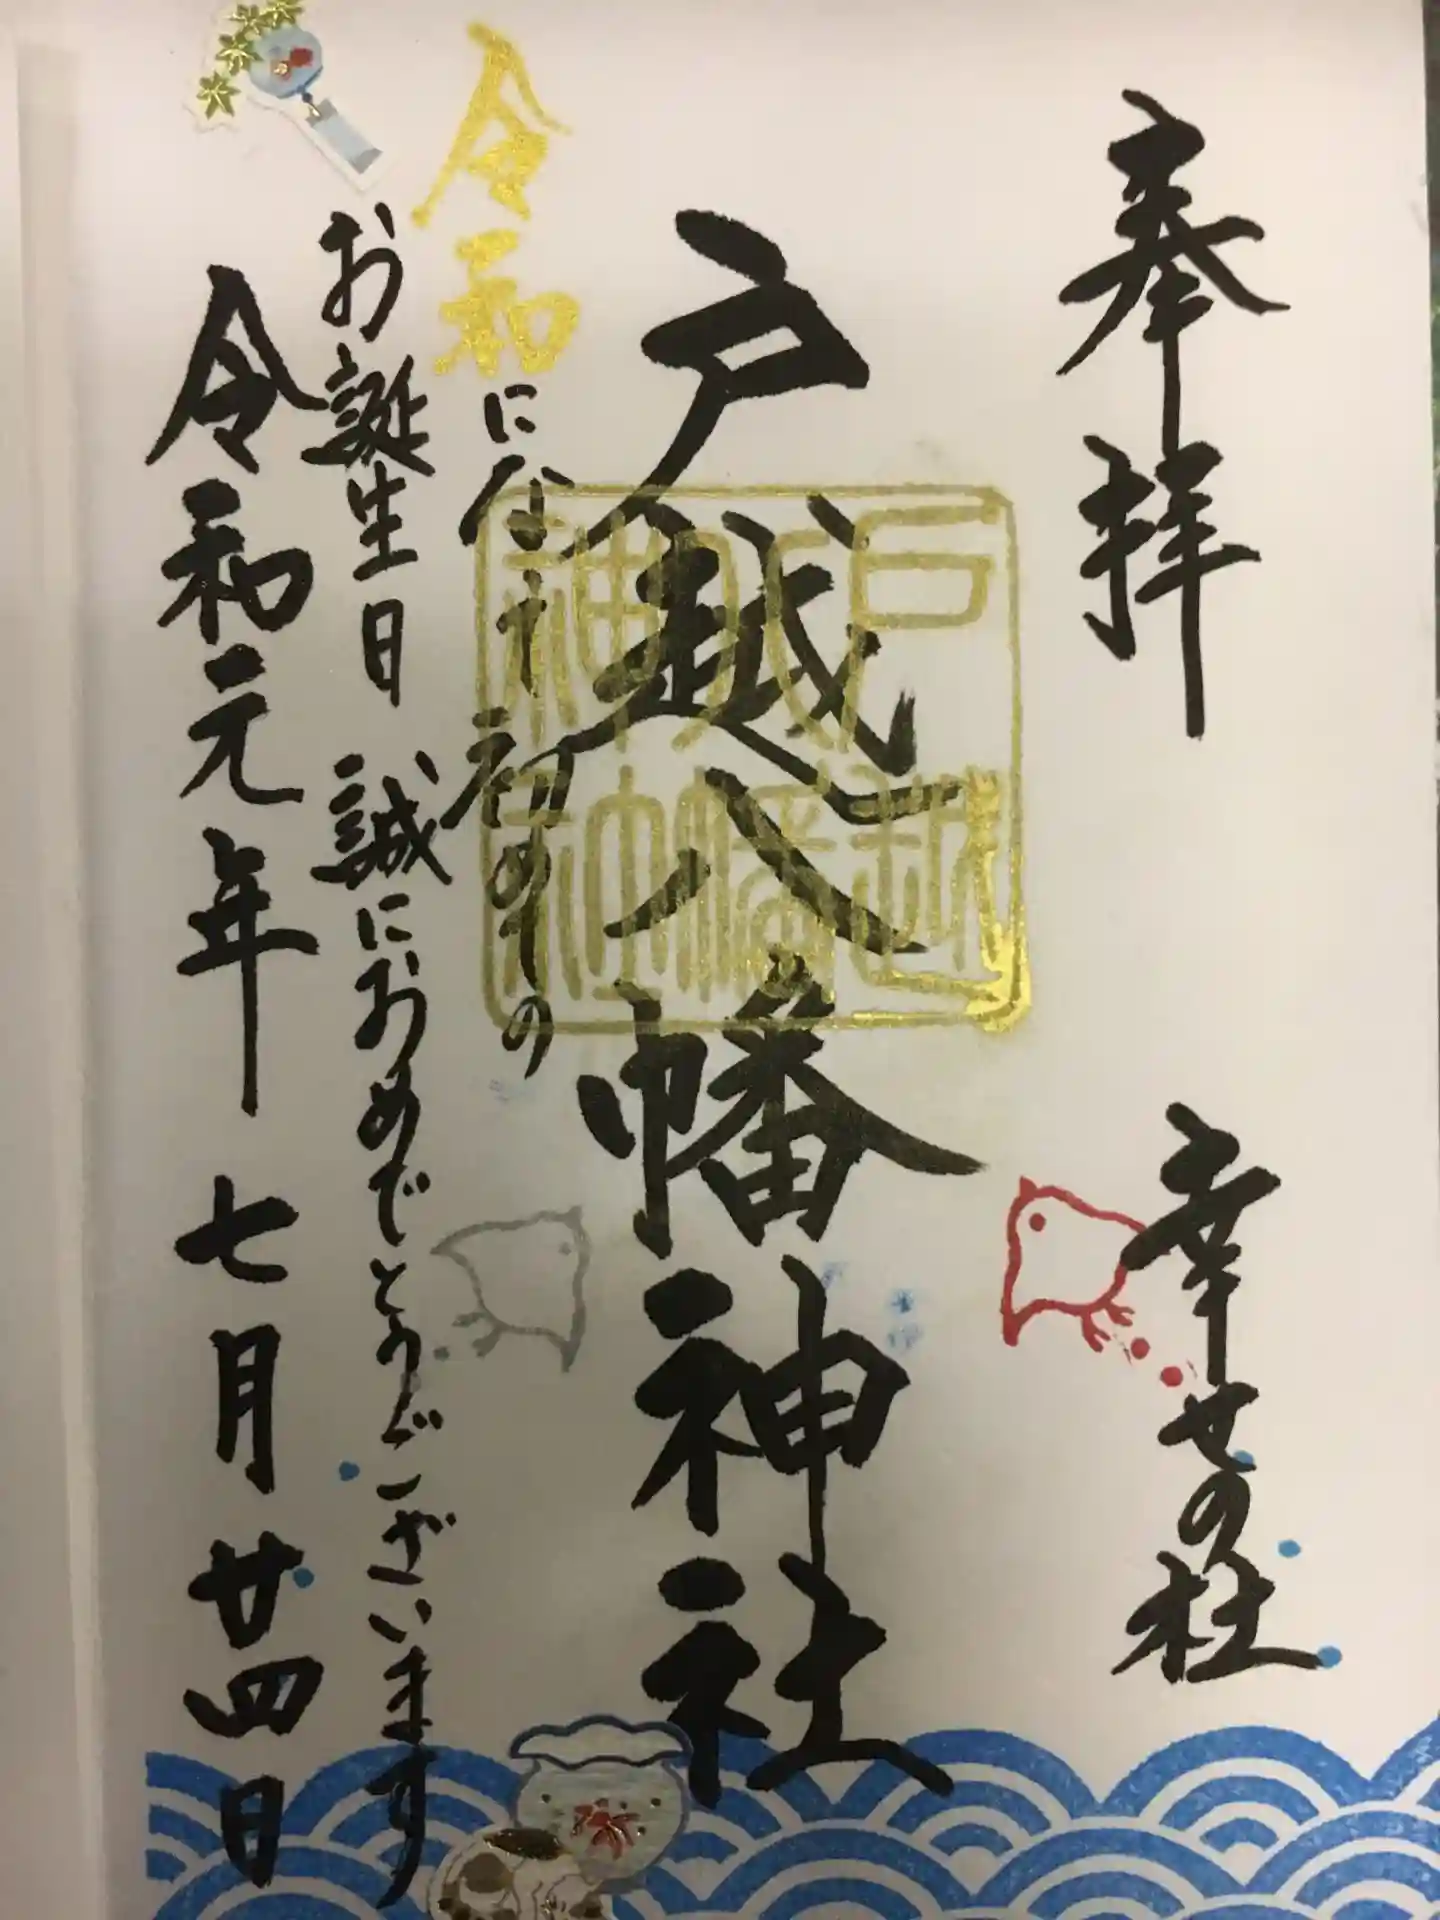 奉拝
幸せの社
戸越八幡神社
戸越
八幡
神社
令和になって初めての
お誕生日 誠におめでとうございます
令和元年 七月廿四日